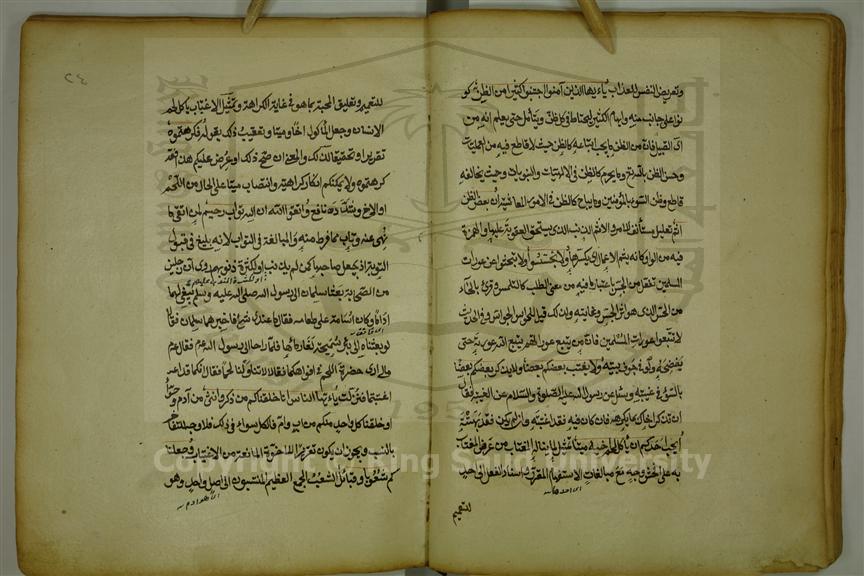 وتعريض النفس للعذاب يا ءيها الذين آمنوا اجتنبوا كثيرا من الظن كو
نوا على جانب منه وابهام الكثير ليحتاط في كل ظن ويتأمل حتى يعلم انه من
اي القبيل فان من الظن ما يجب اتباعه كالظن حيث لا قاطع فيه من العمليات
وحسن الظن بالله تع وما يحرم كالظن في الالهيات والنبوات وحيث يخالفه
قاطع وظن السوء بالمؤمنين وما يباح كالظن في الامور المعاشية ان بعض الظن
اثم تعليل مستأنف للامر والاثم الذنب الذي يستحق العقوبة عليه والهمزة
فيه من الواو كانه يثم الاعمال اي يكسرها ولا تجسسوا ولا تبحثوا عن عورات
المسلمين تفعل من الجس باعتبار ما فيه من معنى الطلب كالتلمس وقرئ بالحاء
من الحس الذي هو اثر الجس وغايته ولذلك قيل للحواس الجواس وفي الحديث
لا تتبعوا عورات المسلمين فان من تتبع عوراتهم تتبع الله عورته حتى
يفضحه ولو في جوف بيته ولا يغتب بعضكم بعضا ولا يذكر بعضكم بعضا
بالسوء في غيبته وسئل عن رسول الله عليه الصلوة والسلام عن الغيبة فقال
ان تذكر اخاك بما يكرهه فان كان فيه فقد اغتبته وان لم يكن فقد بهته
أيحب احدكم ان يأكل لحم اخيه ميتا تمثيل لما يناله المغتاب من عرض المغتاب
به على افحش وجه مع مبالغات الاستفهام المقرر واسناد الفعل الى احد
للتعميم
٢٤
للتعميم وتعليق المحبة بما هو في غاية الكراهة وتمثيل الاغتياب باكل لحم
الانسان وجعل المأكول اخا وميتا وتعقيب ذلك بقوله فكرهتموه
تقريرا وتحقيقا لذلك والمعنى ان صح ذلك او عرض عليكم هذا فقد
كرهتموه ولا يمكنكم انكار كراهته وانتصاب ميتا على الحال من اللحم
او الاخ وشدده نافع واتقوا الله ان الله تواب رحيم لمن اتقى ما
نهى عنه وتاب مما فرط منه والمبالغة في التواب لانه بليغ في قبول
التوبة اذ يجعل صاحبها كمن لم يذنب او لكثرة ذنوبهم روي ان رجلين
من الصحابة بعثا سلمان الى رسول الله صلى الله عليه وسلم يبغي لهما
اداما وكان اسامة على طعامه فقال ما عندي شيء فاخبرهما سلمان فقالا
لو بعثناه الى بئر سميحة لغار ماؤها فلما راحا الى رسول الله عم قال لهم
ما لي ارى حضرة اللحم في افواهكما فقالا ما تناولنا لحما فقال انكما قد
اغتبتما فنزلت يا ءيها الناس انا خلقناكم من ذكر وانثى من آدم وحوا
او خلقنا كل واحد منكم من اب وام فالكل سواء في ذلك فلا وجه للتفاخر
بالنسب ويجوز ان يكون تقريرا للاخوة المانعة من الاغتياب وجعلنا
كم شعوبا وقبائل الشعب الجمع العظيم المنتسبون الى اصل واحد وهو